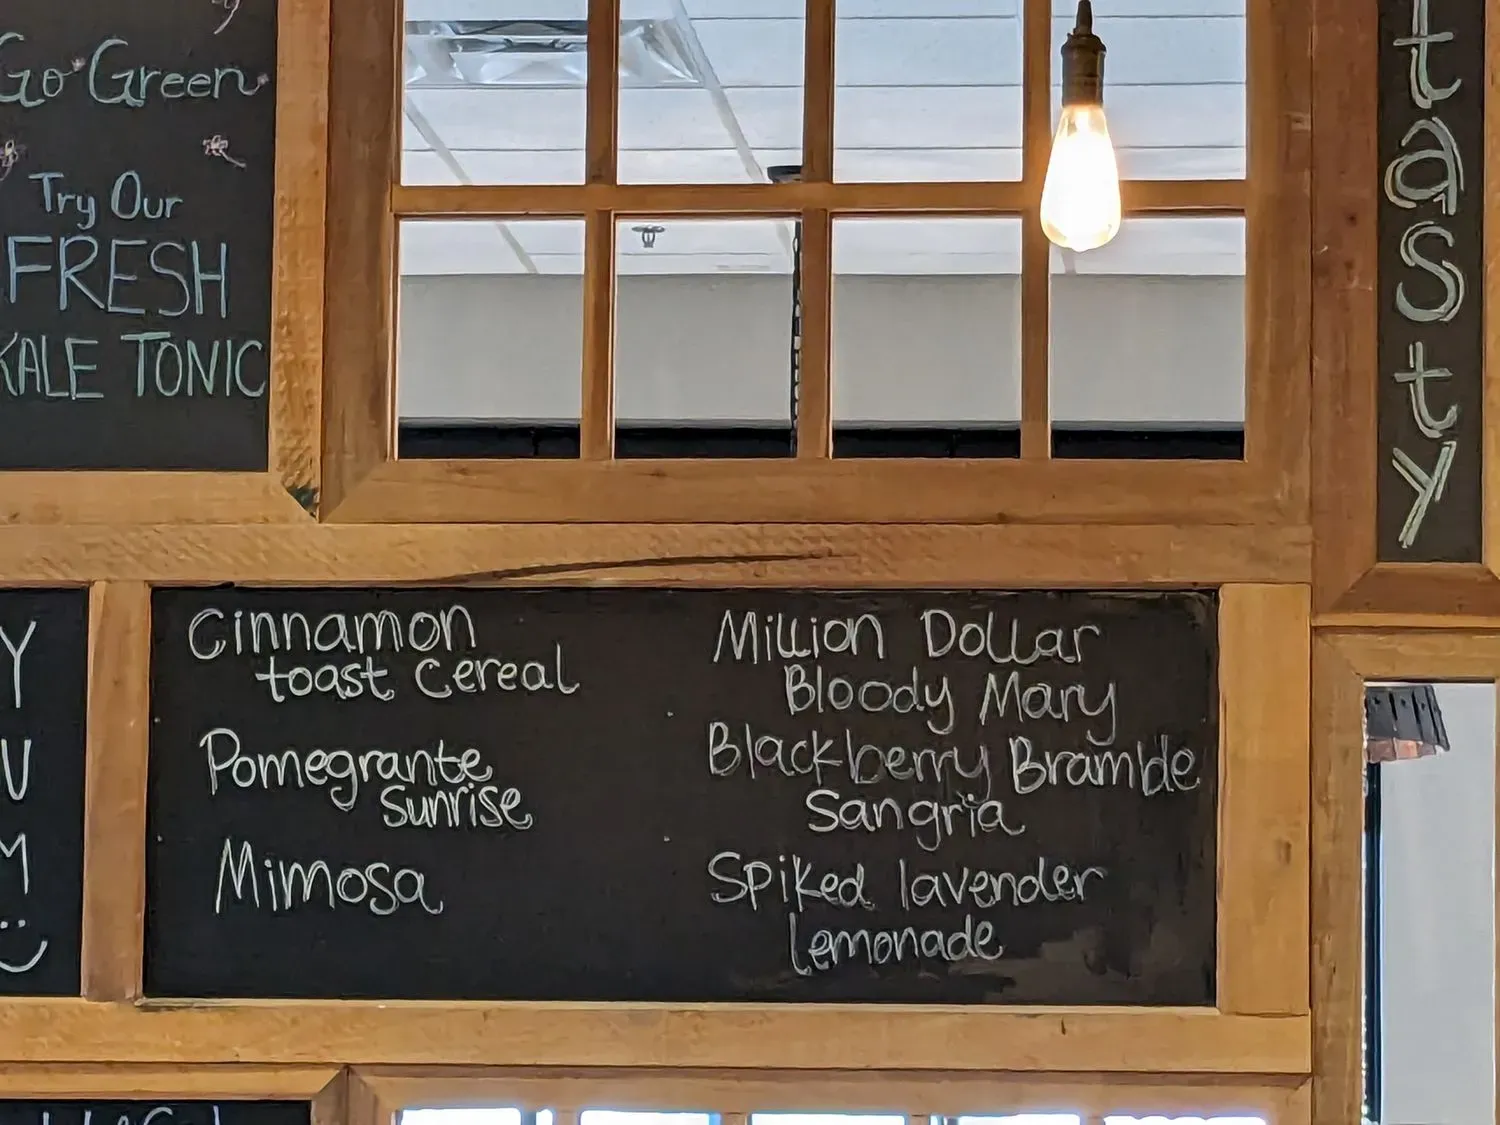 Go Green
Try Our
FRESH
KALE TONIC
tasty
Y
U
M
Cinnamon
toast Cereal
Pomegrante
Sunrise
Mimosa
Million Dollar
Bloody Mary
Blackberry Bramble
Sangria
Spiked lavender
lemonade